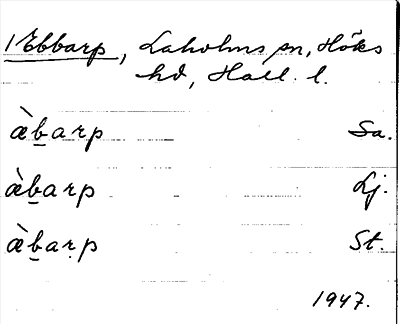 1 Ebbarp, Laholms sn, Höks
hd, Hall. l.
æ̀b̲arp Sa.
æ̀b̲arp Lj.
æ̀b̲aṛp St.
1947.